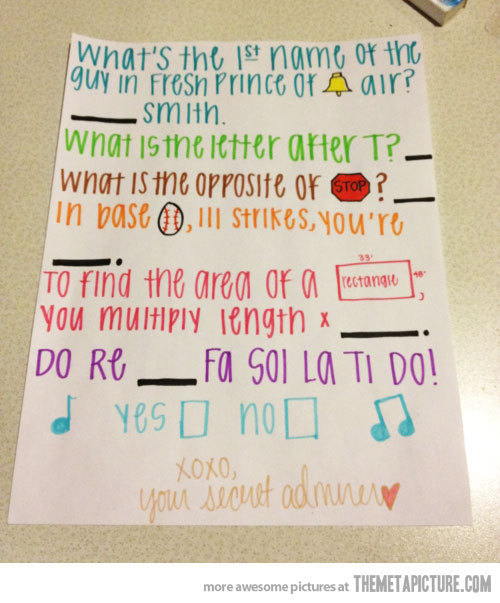 What's the 1st name of the
guy in Fresh Prince of air?
____ smith.
What is the letter after T? __
What is the opposite of STOP ? __
In base , III strikes, you're
____.
33'
To find the area of a rectangle 48",
you multiply length x ____.
DO Re ____ Fa Sol La Ti DO!
yes no
xoxo,
your secret admirer
more awesome pictures at THEMETAPICTURE.COM